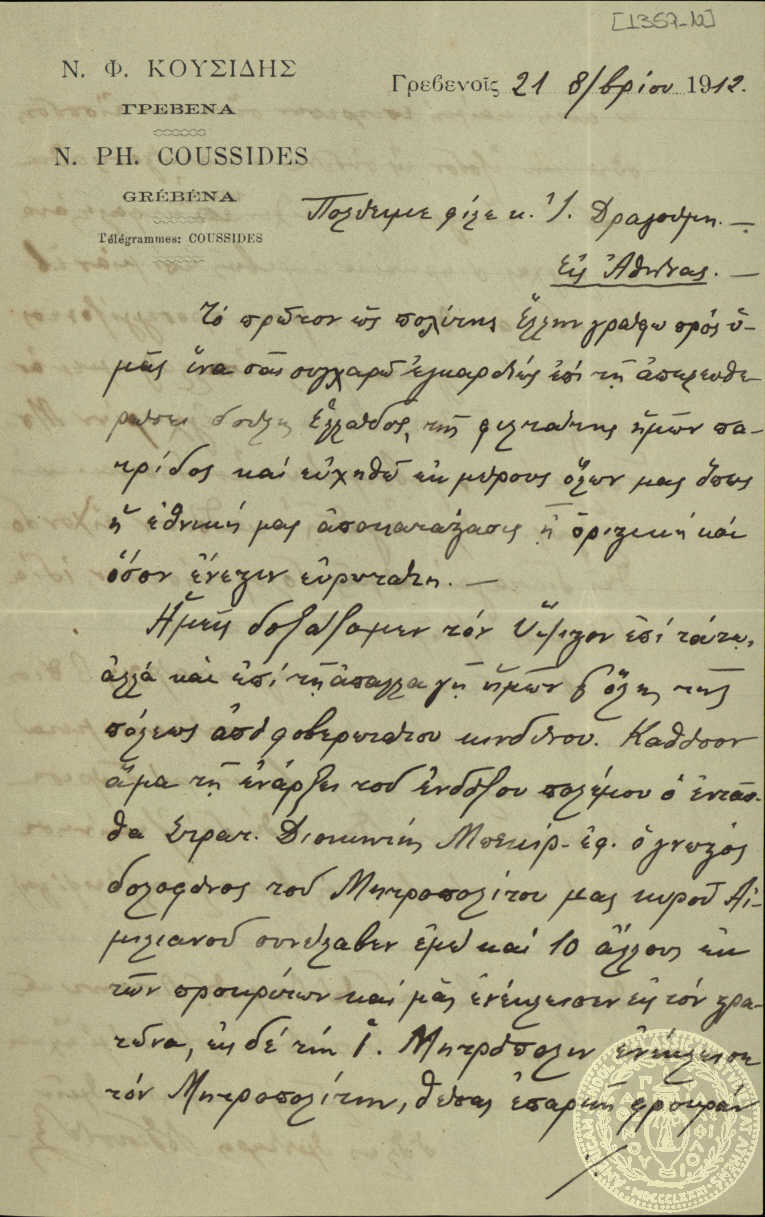 [1357-10]
Ν. Φ. ΚΟΥΣΙΔΗΣ
ΓΡΕΒΕΝΑ
N. PH. COUSSIDES
GRÉBÉNA
Télégrammes: COUSSIDES
Γρεβενοῖς 21 8/βρίου 1912.
Πολύτιμε φίλε κ. Ἰ. Δραγούμη. —
Εἰς Ἀθήνας. —
Τό πρῶτον ὡς πολίτης Ἕλλην γράφω πρός ὑ-
μᾶς ἵνα σᾶς συγχαρῶ ἐγκαρδίως ἐπί τῇ ἀπελευθε-
ρώσει Ἑλλάδος, τῆς φιλτάτης ἡμῶν πα-
τρίδος καί εὐχηθῶ ἐκ μέρους ὅλων μας ὅπως
ἡ ἐθνική μας ἀποκατάστασις ᾖ ὁριστική καί
ὅσον ἔνεστιν εὐρυτάτη. —
Ἡμεῖς δοξάζομεν τόν Ὕψιστον ἐπί τούτῳ,
ἀλλά καί ἐπί τῇ ἀπαλλαγῇ ἡμῶν ὅλης τῆς
πόλεως ἀπό φοβερωτάτου κινδύνου. Καθόσον
ἅμα τῇ ἐνάρξει τοῦ ἐνδόξου πολέμου ὁ ἐνταῦ-
θα Στρατ. Διοικητής Μπεκίρ-ἐφ. ὁ γνωστός
δολοφόνος τοῦ Μητροπολίτου μας κυροῦ Αἰ-
μιλιανοῦ συνέλαβεν ἐμέ καί 10 ἄλλους ἐκ
τῶν προκρίτων καί μᾶς ἐνέκλεισεν εἰς τόν στρα-
τῶνα, εἰς δέ τήν Ἱ. Μητρόπολιν ἐνέκλεισε
τόν Μητροπολίτην, θέσας ἐπαρκῆ φρουράν